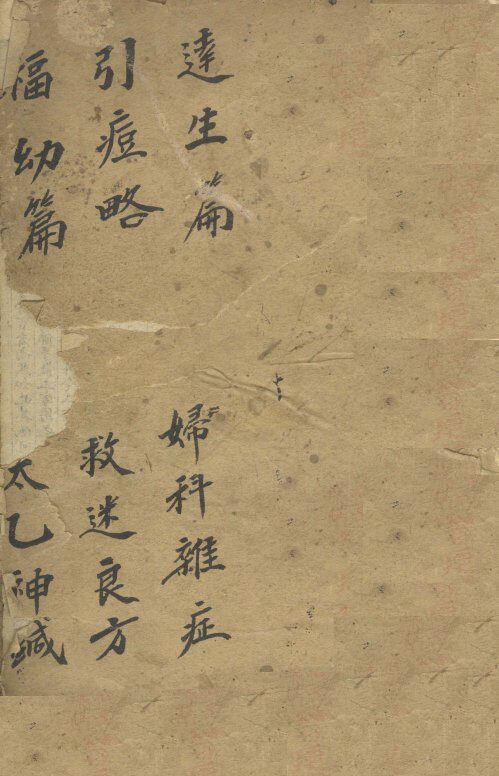 達生篇
婦科雜症
引痘略
救迷良方
福幼篇
太乙神鍼